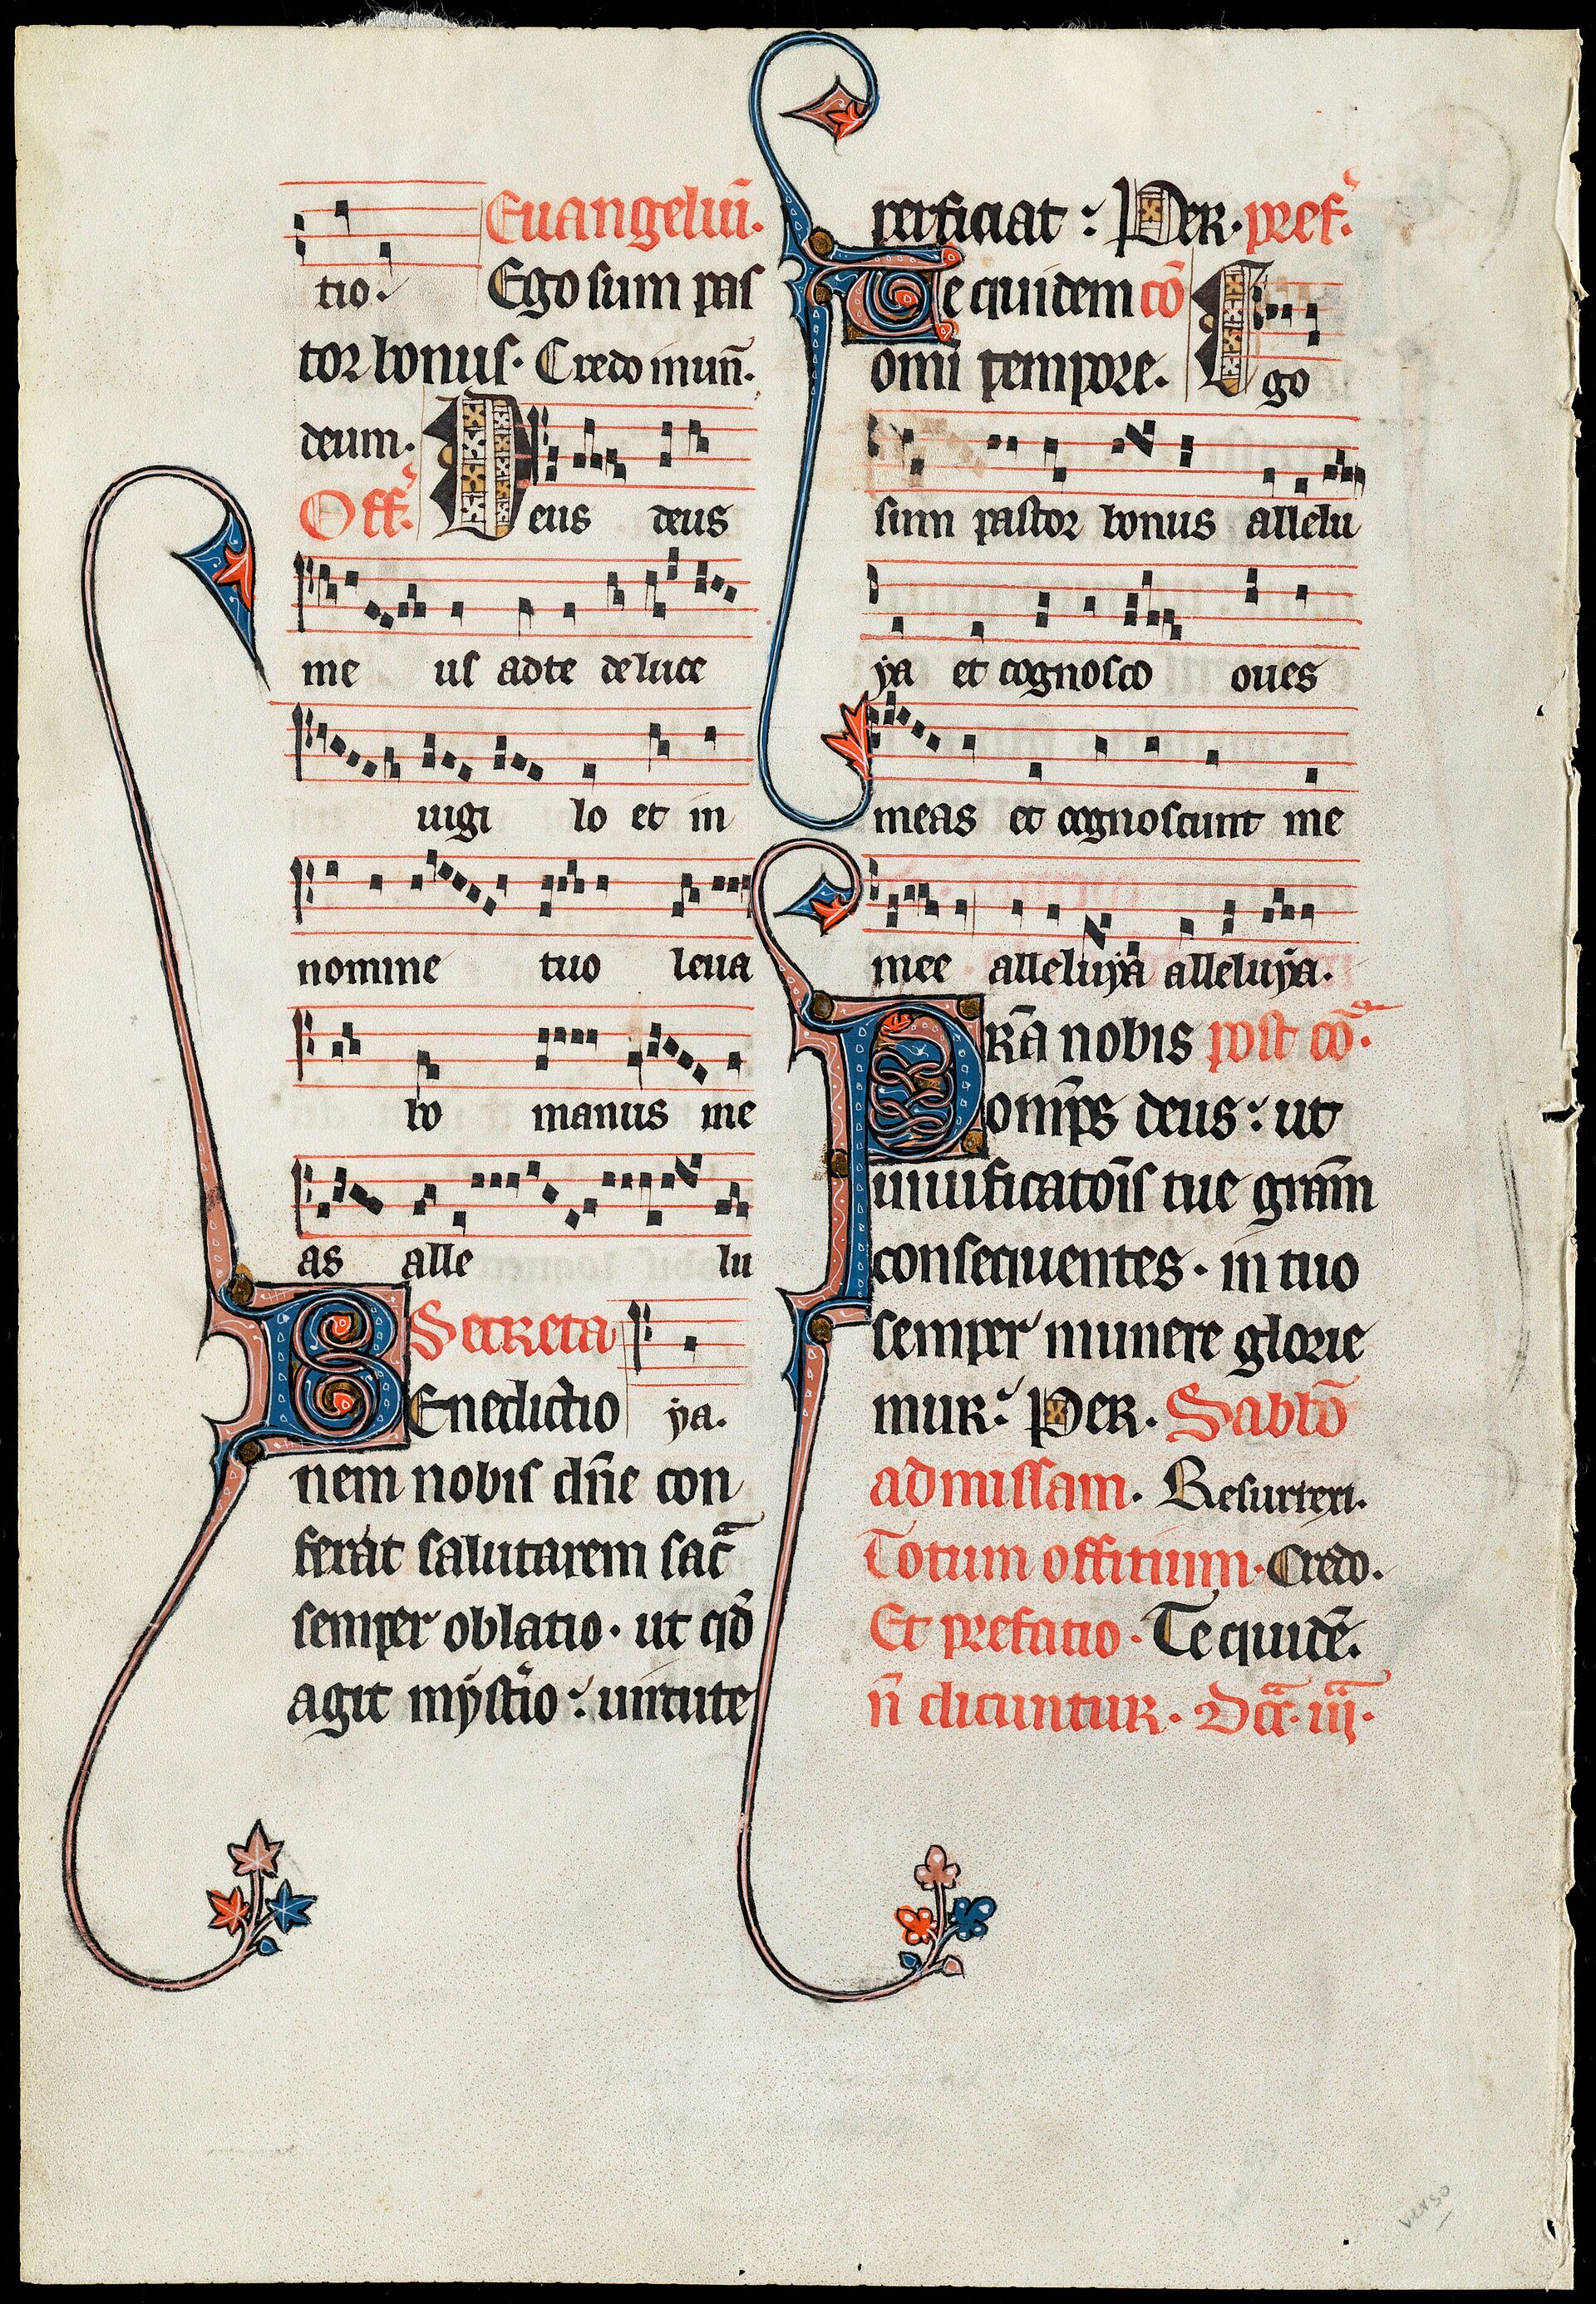 Euangeliū.
tio. Ego sum pas
tor bonus. Credo in un̄.
deum.
Off. Deus deus
me us ad te de luce
uigi lo et in
nomine tuo leua
bo manus me
as alle lu
Secreta
BEnedictio ya.
nem nobis dn̄e con
ferat salutarem sac̄
semper oblatio. ut qđ
agit mẏstio: uirtute
perficiat: PER. pref.
Te quidem cō
om̄i tempore. Ego
sum pastor bonus allelu
ya et cognosco oues
meas et cognoscunt me
mee alleluẏa alleluẏa.
PR̄A nobis post cō.
om̄ps deus: ut
uiuificatōis tue grām
consequentes. in tuo
semper munere glorie
mur: PER. Sabb̄o
ad missam. Resurrexi.
Totum offitium. Credo.
Et prefatio. Te quidē.
n̄ dicuntur. Dc̄a. iij.
verso